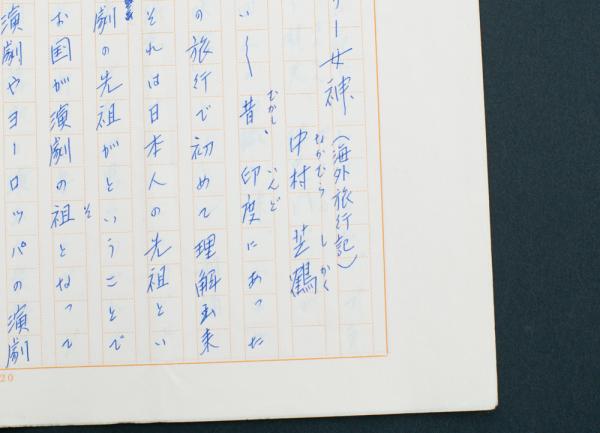 ー女神
（海外旅行記）
なかむら しかく
中村 芝鶴
むかし いんど
い〱昔、印度にあった
の旅行で初めて理解出来
それは日本人の先祖とい
劇の先祖がということで
そ
お国が演劇の祖となって
演劇やヨーロッパの演劇
20